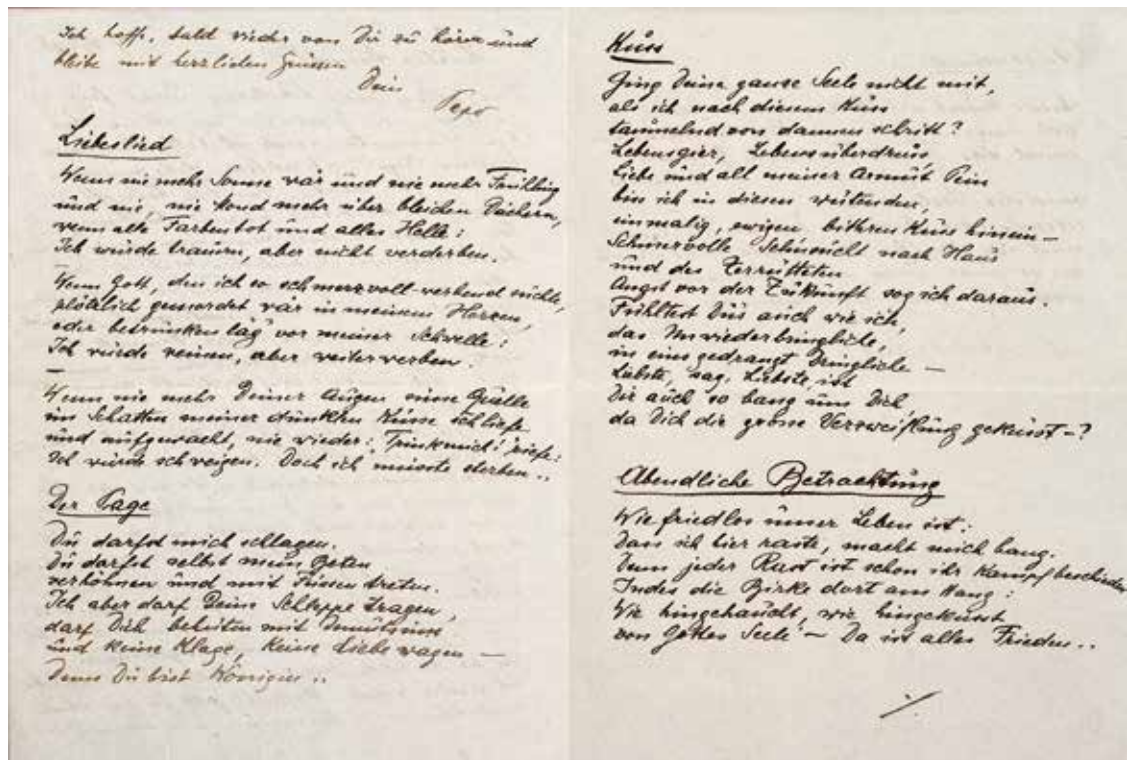 Ich hoffe, bald wieder von Dir zu hören und
bleibe mit herzlichen Grüssen
Dein
Liebeslied
Wenn nie mehr Sonne wär und nie mehr Frühling
und nie, nie Mond mehr über bleichen Dächern,
wenn alle Farben tot und alles Helle:
Ich würde trauern, aber nicht verderben.
Wenn Gott, den ich so schmerzvoll-werbend suchte,
plötzlich gemordet wär in meinem Herzen,
oder betrunken lag' vor meiner Schwelle:
Ich würde weinen, aber weiter werben.
–
Wenn nie mehr Deiner Augen eine Quelle
im Schatten meiner dunklen Küsse schliefe
und aufgewacht, nie wieder: Trink mich! riefe:
Ich würde schweigen. Doch ich müsste sterben..
Der Page
Du darfst mich schlagen.
Du darfst selbst mein Beten
verhöhnen und mit Füssen treten.
Ich aber darf Deine Schleppe tragen,
darf Dich geleiten mit Demutsinn
und keine Klage, keine Liebe wagen –
Denn Du bist Königin..
Kuss
Ging Deine ganze Seele nicht mit,
als ich nach diesem Kuss
taumelnd von dannen schritt?
Lebensgier, Lebensüberdruss,
Liebe und all meiner Armut Pein
bin ich in diesen wütenden,
einmalig, ewigen, bittren Kuss hinein –
Schmerzvolle Sehnsucht nach Haus
und des Zerrütteten
Angst vor der Zukunft sog ich daraus.
Fühltest Du's auch wie ich,
das Unwiederbringliche,
in eins gedrängt Dringliche –
Liebste, sag, Liebste, ist
Dir auch so bang um Dich
da Dich die grosse Verzweiflung geküsst –?
Abendliche Betrachtung
Wie friedlos unser Leben ist:
Dass ich hier raste, macht mich bang.
Denn jeder Rast ist schon ihr Kampf beschieden
Indes die Birke dort am Hang:
Wie hingehaucht, wie hingeküsst
von Gottes Seele – Da ist alles Frieden..